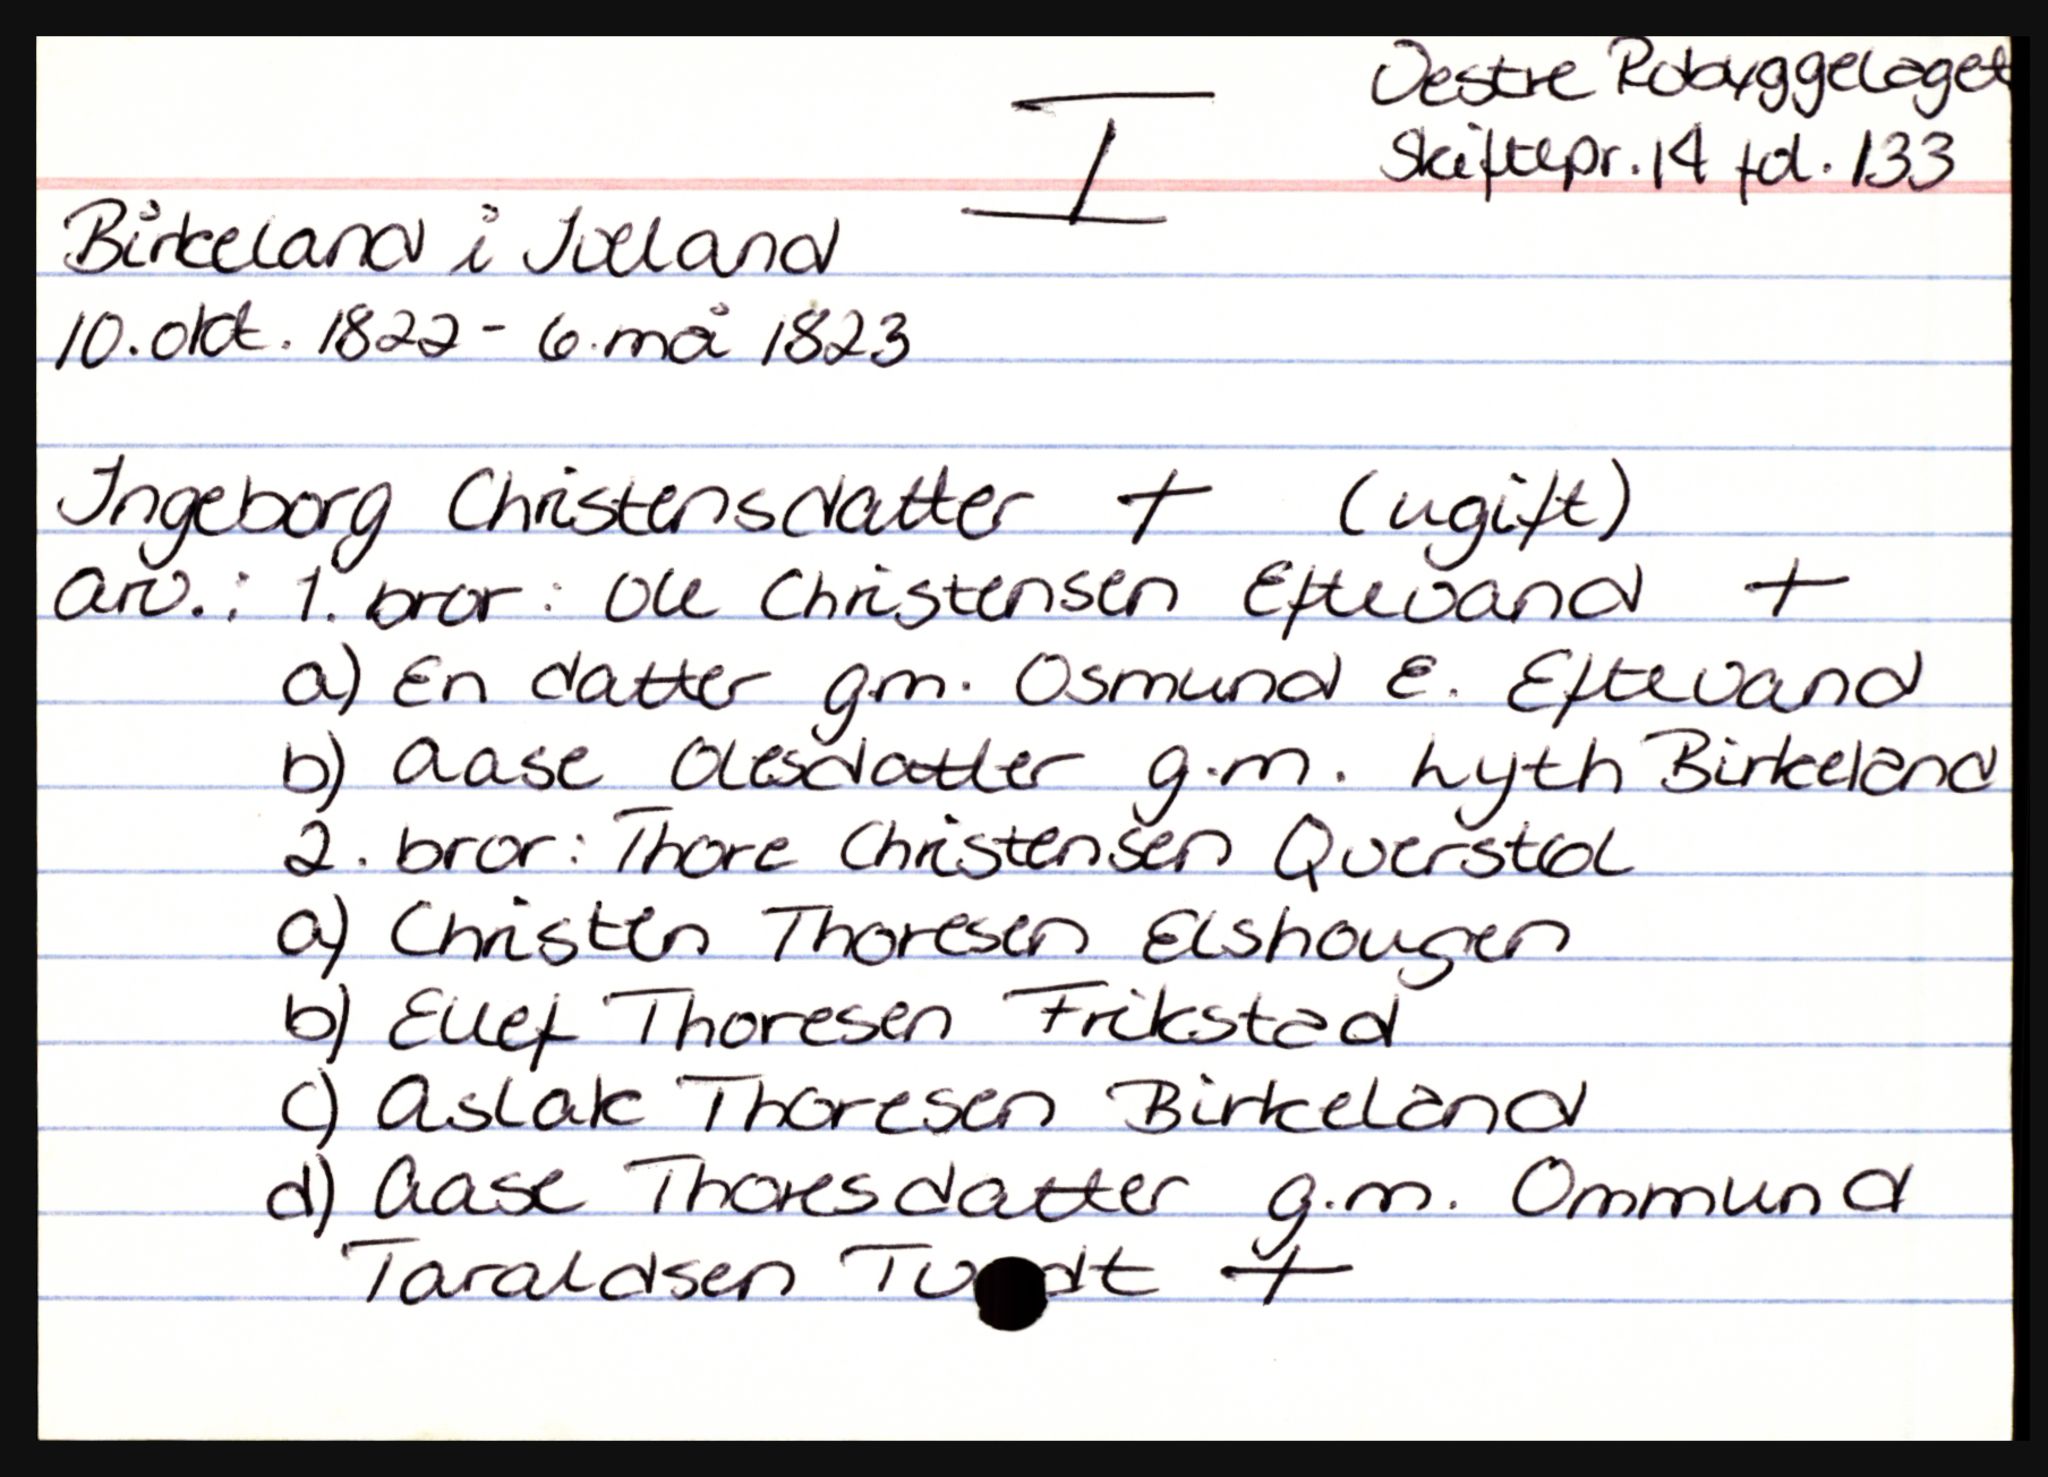 Vestre Robyggelaget
I
Skiftepr. 14 fol. 133
Birkeland i Iveland
10. okt. 1822 - 6. mai 1823
Ingeborg Christensdatter + (ugift)
Arv.: 1. bror: Ole Christensen Eftevand +
a) En datter g.m. Osmund E. Eftevand
b) Aase Olesdatter g.m. Lyth Birkeland
2. bror: Thore Christensen Qverstøl
a) Christen Thoresen Elshougen
b) Ellef Thoresen Frikstad
c) Aslak Thoresen Birkeland
d) Aase Thoresdatter g.m. Ommund
Taraldsen +